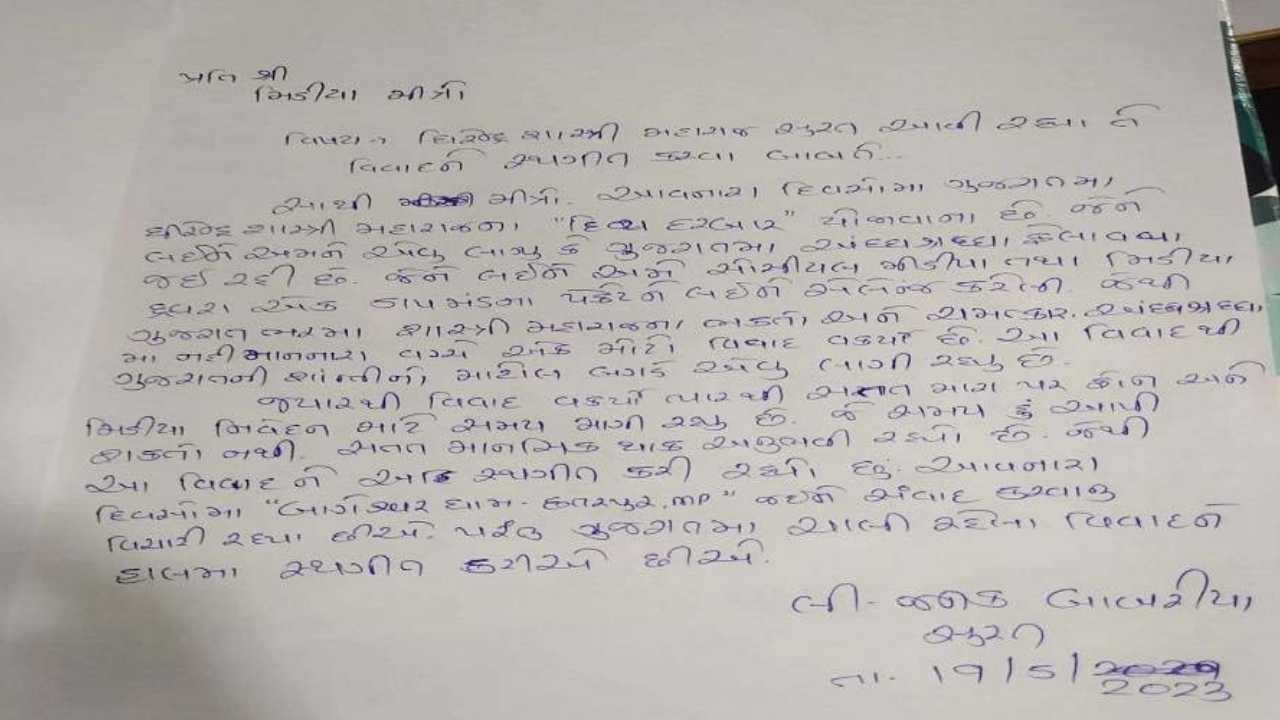 પ્રતિ શ્રી
મિડીયા મીત્રો
વિષય :- ધિરેન્દ્ર શાસ્ત્રી મહારાજ સુરત આવી રહ્યા તે
વિવાદને સ્થગીત કરવા બાબતે...
સાથી મીત્રો. આવનારા દિવસોમા ગુજરાતમા
ધીરેન્દ્ર શાસ્ત્રી મહારાજના "દિવ્ય દરબાર" યોજાવાના છે. જેને
લઈને અમને એવુ લાગ્યુ કે ગુજરાતમા અંધ્ધશ્રધ્ધા ફેલાવવા
જઈ રહી છે. જેને લઈને અમે સોસીયલ મીડીયા તથા મિડીયા
દ્વારા એક ડાયમંડના પેકેટને લઈને ચેલેન્જ કરેલી. જેથી
ગુજરાતભરમા શાસ્ત્રી મહારાજના ભક્તો અને ચમત્કાર. અંધ્ધશ્રધ્ધા
મા નહી માનનારા વચ્ચે એક મોટો વિવાદ વકર્યો છે. આ વિવાદથી
ગુજરાતની શાંન્તીનો માહોલ બગડે એવુ લાગી રહ્યુ છે.
જ્યારથી વિવાદ વકર્યો ત્યારથી સતત મારા પર ફોન અને
મિડીયા નિવેદન માટે સમય માગી રહ્યુ છે. જે સમય હું આપી
શકતો નથી. સતત માનસિક થાક અનુભવી રહ્યો છું. જેથી
આ વિવાદને અહિં સ્થગીત કરી રહ્યો છું. આવનારા
દિવસોમા "બાગેશ્વર ધામ - છતરપુર. MP" જઈને સંવાદ કરવાનુ
વિચારી રહ્યા છીએ. પરંતુ ગુજરાતમા ચાલી રહેલા વિવાદને
હાલમા સ્થગીત કરીએ છીએ.
લી - જનક બાબરીયા
સુરત
તા. 19/5/2023